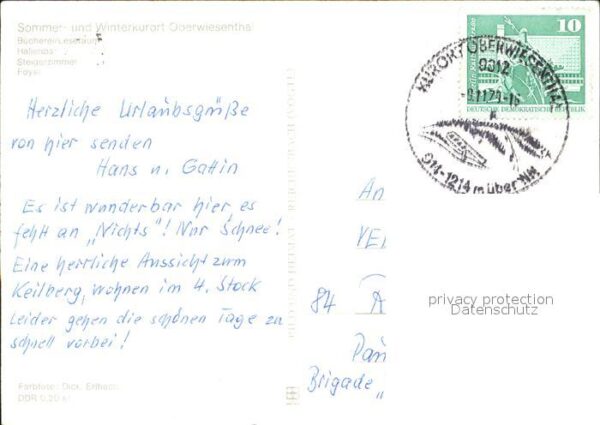 Sommer- und Winterkurort Oberwiesenthal
Bücherei/Leseraum
Steigerzimmer
Foyer
Herzliche Urlaubsgrüße
von hier senden
Hans u. Gattin
Es ist wunderbar hier, es
fehlt an „Nichts“! Nur Schnee!
Eine herrliche Aussicht zum
Keilberg, wohnen im 4. Stock
Leider gehen die schönen Tage zu
schnell vorbei!
Farbfoto:
DDR 0,20
10
DEUTSCHE DEMOKRATISCHE REPUBLIK
KURORT OBERWIESENTHAL
9312
914-1214 m über NN
An
84
Brigade „
privacy protection
Datenschutz